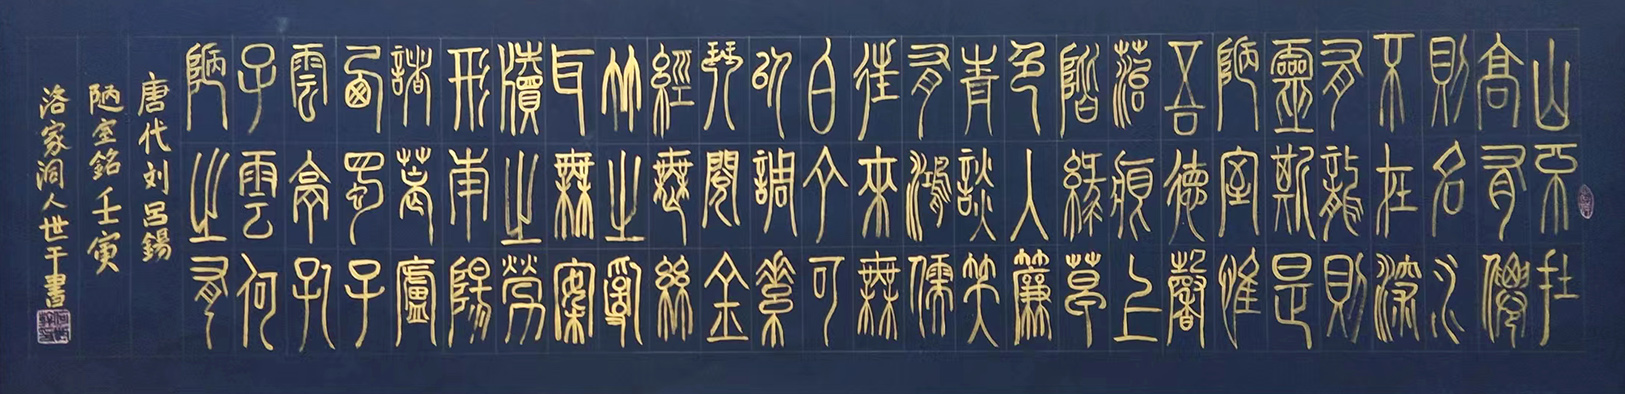 山不在
高有僊
則名水
不在深
有龍則
靈斯是
陋室惟
吾德馨
菭痕上
階緣草
色入簾
青談笑
有鴻儒
往來無
白丁可
以調素
琴閱金
經無絲
竹之亂
耳無案
牘之勞
形南陽
諸葛廬
西蜀子
雲亭孔
子雲何
陋之有
唐代刘呂錫
陋室銘壬寅
洛家洞人世干書